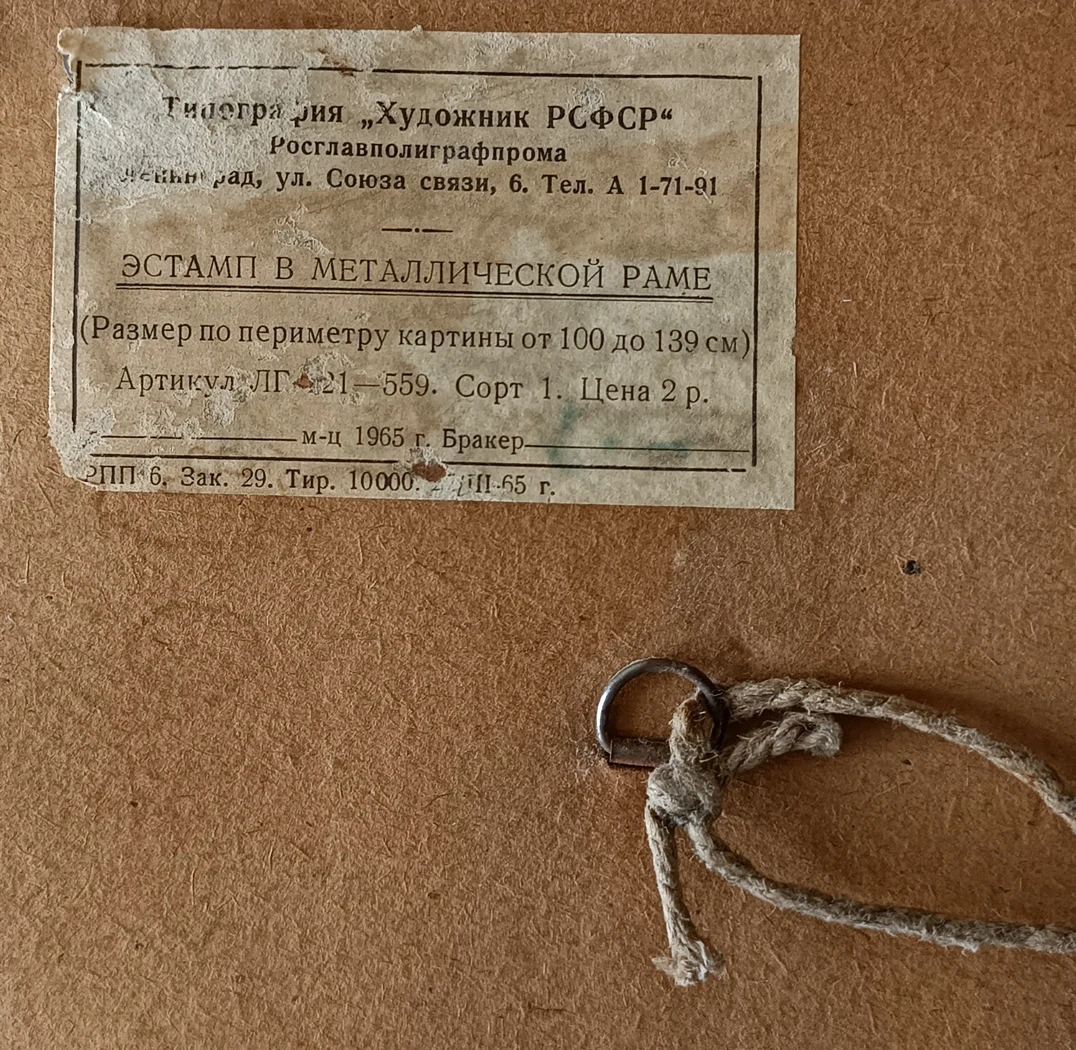 Типография „Художник РСФСР“
Росглавполиграфпрома
Ленинград, ул. Союза связи, 6. Тел. А 1-71-91
ЭСТАМП В МЕТАЛЛИЧЕСКОЙ РАМЕ
(Размер по периметру картины от 100 до 139 см)
Артикул 21—559. Сорт 1. Цена 2 р.
м-ц 1965 г. Бракер
РПП 6. Зак. 29. Тир. 10000. 65 г.